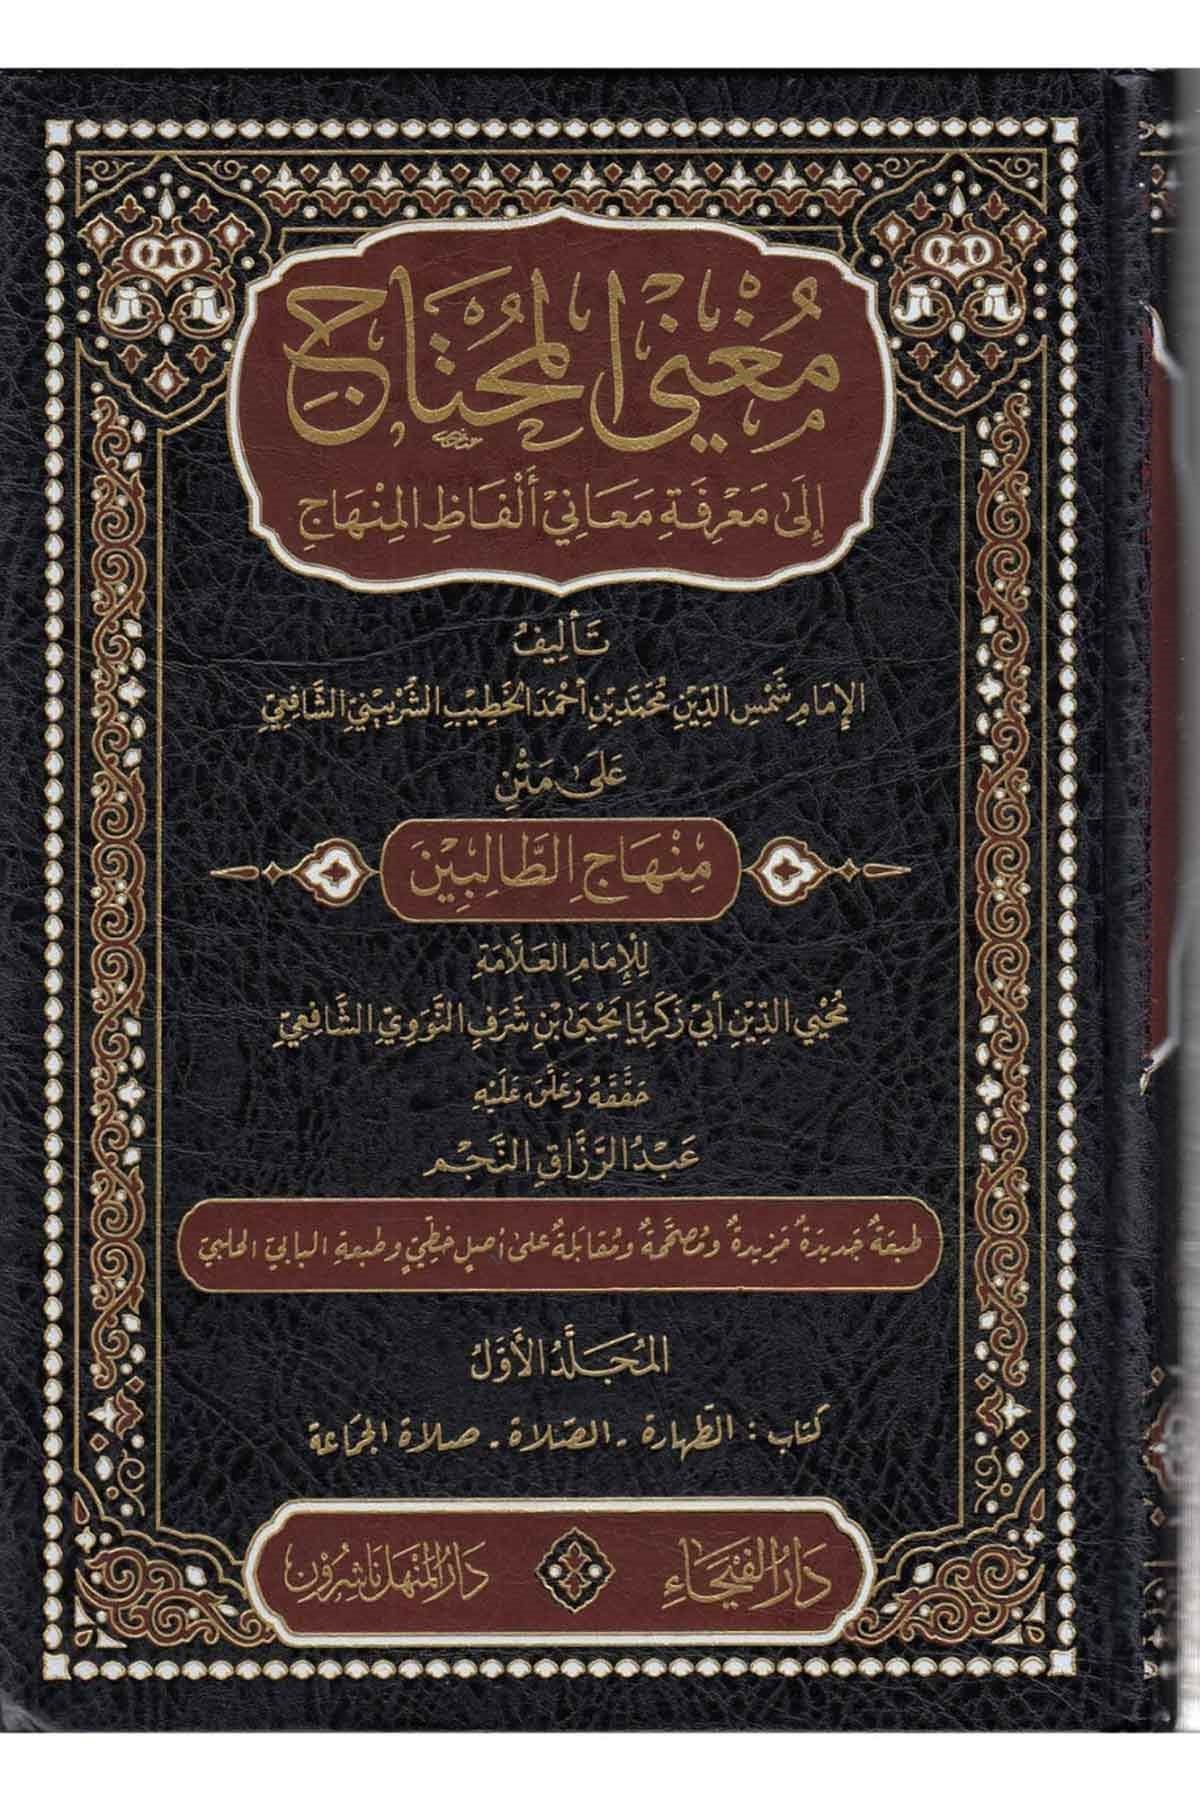 مُغْنِي الْمُحْتَاجِ
إِلَى مَعْرِفَةِ مَعَانِي أَلْفَاظِ الْمِنْهَاجِ
تَأْلِيفُ
الإِمَامِ شَمْسِ الدِّينِ مُحَمَّدِ بْنِ أَحْمَدَ الْخَطِيبِ الشِّرْبِينِيِّ الشَّافِعِيِّ
عَلَى مَتْنِ
مِنْهَاجِ الطَّالِبِينَ
لِلْإِمَامِ الْعَلَّامَةِ
مُحْيِي الدِّينِ أَبِي زَكَرِيَّا يَحْيَى بْنِ شَرَفٍ النَّوَوِيِّ الشَّافِعِيِّ
حَقَّقَهُ وَعَلَّقَ عَلَيْهِ
عَبْدُ الرَّزَّاقِ النَّجْمِ
طبعَةٌ جَديدَةٌ مَزِيدةٌ ومُصَحَّحةٌ ومُقابَلةٌ على أصلٍ خطِّيٍّ وطبعةِ البابيّ الحلبيّ
الْمُجَلَّدُ الْأَوَّلُ
كتَاب : الطّهارة - الصّلاة - صلاة الجَماعة
دَارُ الْفَيْحَاءِ
دَارُ الْمَنْهَلِ نَاشِرُون